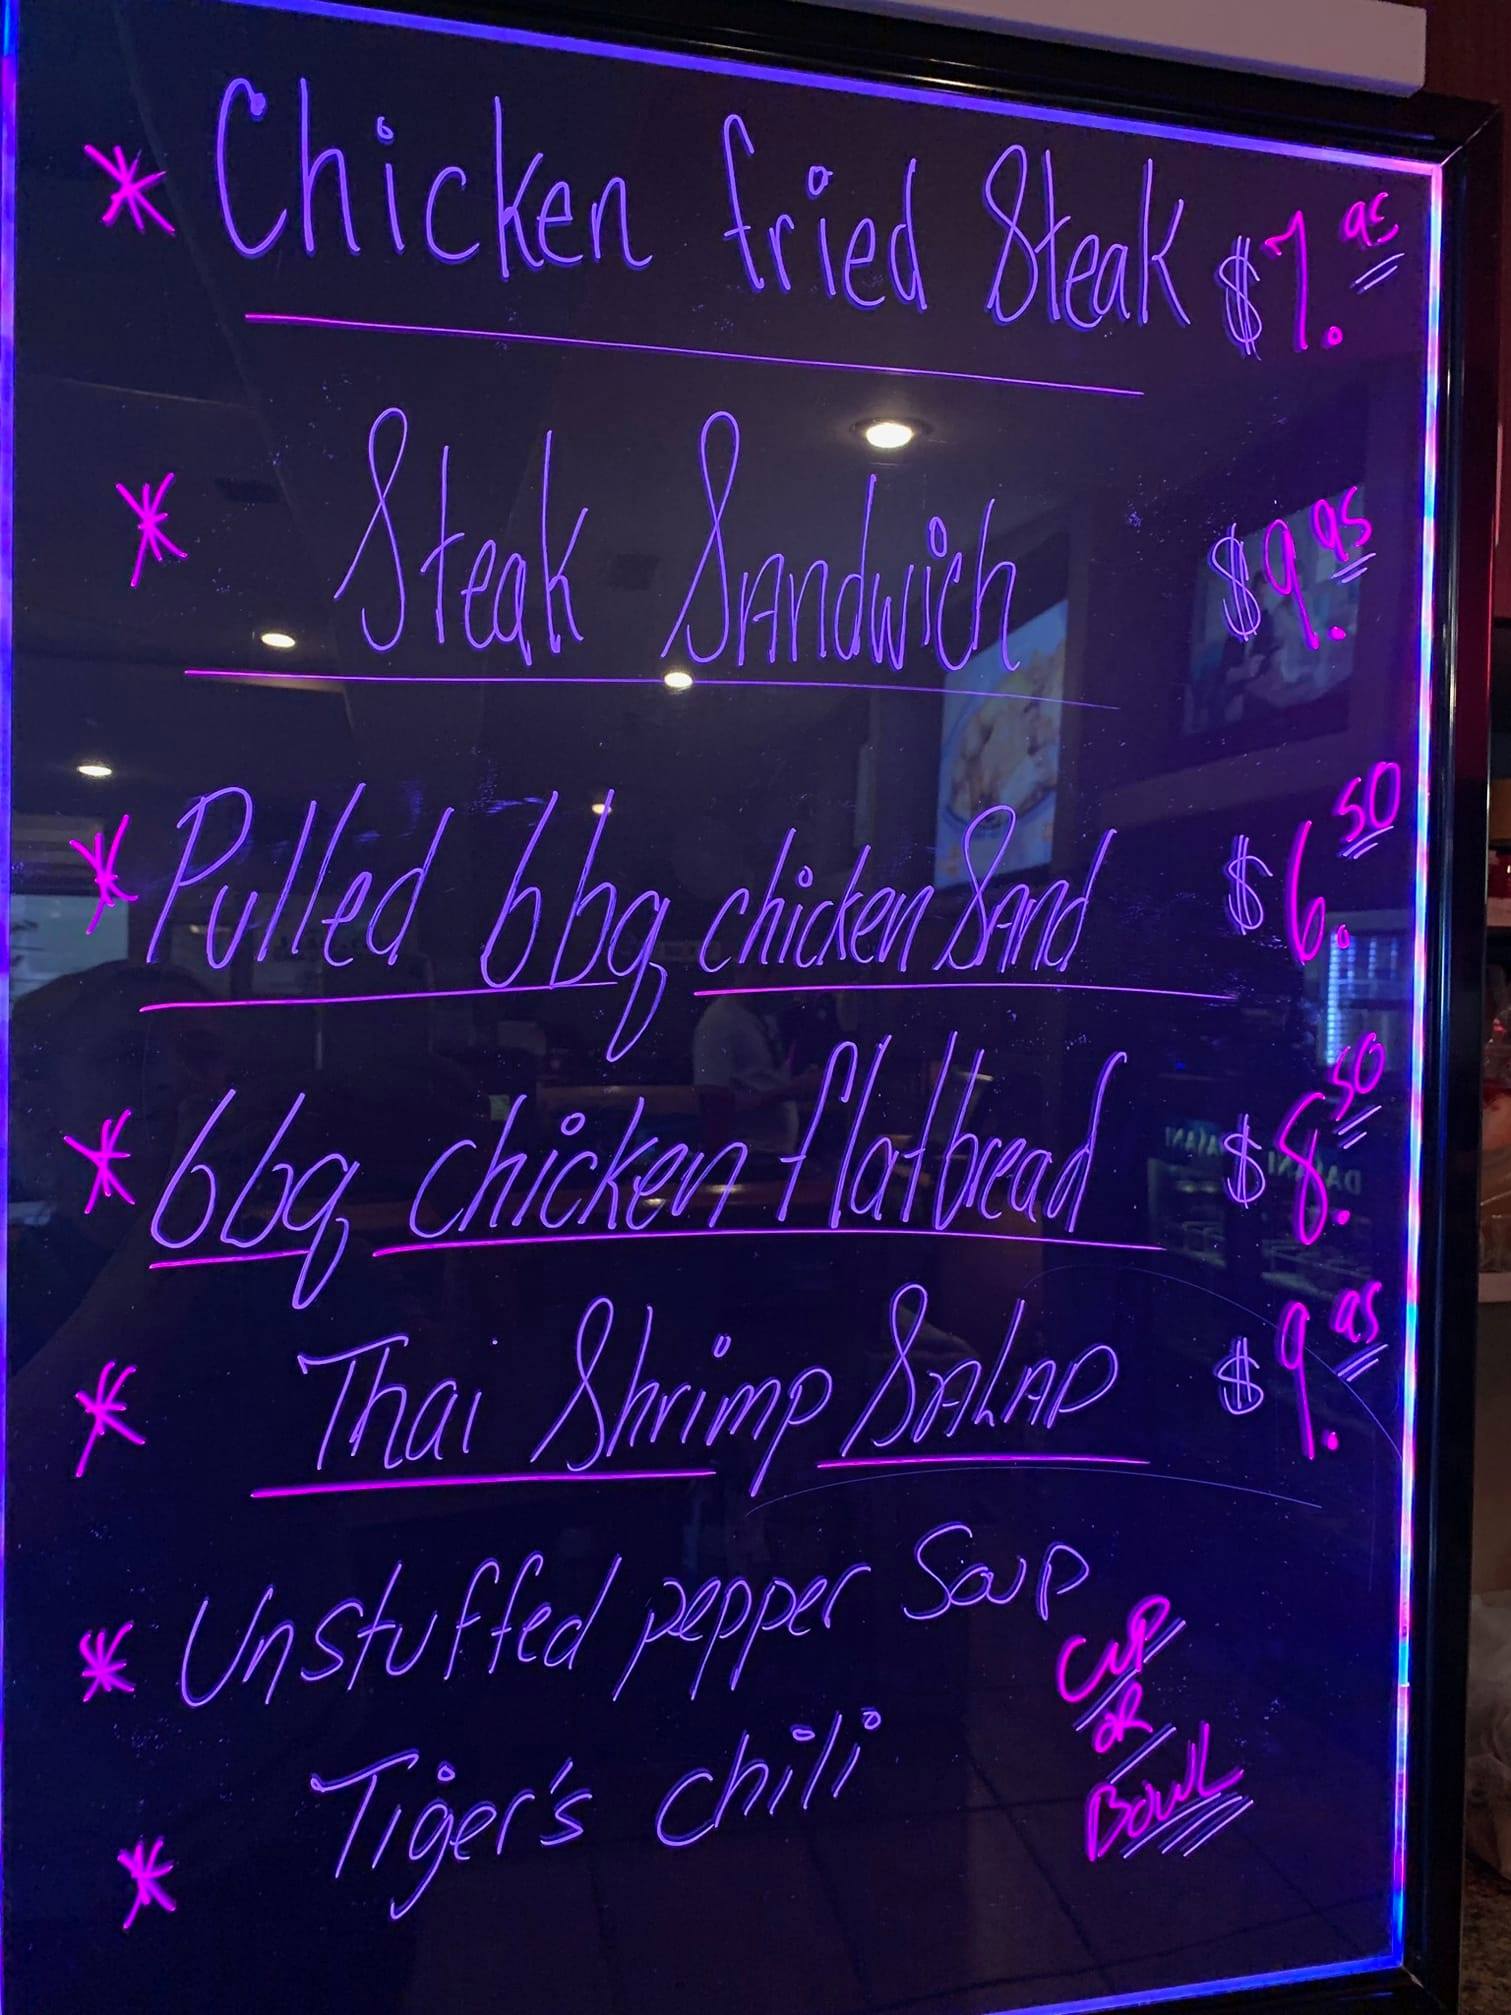 * Chicken fried Steak $7.95
* Steak Sandwich $9.95
* Pulled bbq chicken Sand $6.50
* bbq chicken flatbread $8.50
* Thai Shrimp SALAD $9.95
* Unstuffed pepper Soup
CUP
OR
BOWL
* Tiger's chili
DASANI